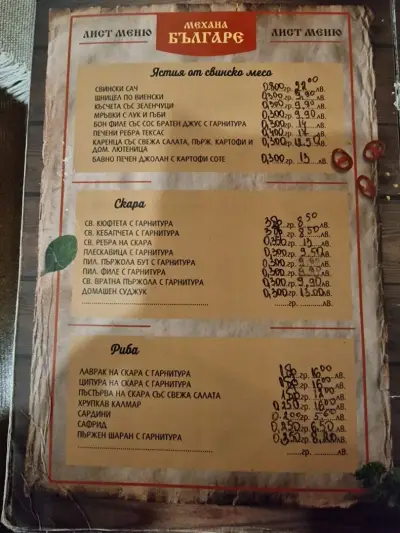 ЛИСТ МЕНЮ
МЕХАНА
БЪЛГАРЕ
ЛИСТ МЕНЮ
Ястия от свинско месо
СВИНСКИ САЧ 0,800 гр. 22.00 лв.
ШНИЦЕЛ ПО ВИЕНСКИ 0,300 гр. 9.90 лв.
КЪСЧЕТА СЪС ЗЕЛЕНЧУЦИ 0,300 гр. 9.90 лв.
МРЪВКИ С ЛУК И ГЪБИ 0,300 гр. 9.90 лв.
БОН ФИЛЕ СЪС СОС БРАТЕН ДЖУС С ГАРНИТУРА 0,300 гр. 14 лв.
ПЕЧЕНИ РЕБРА ТЕКСАС 0,400 гр. 17 лв.
КАРЕНЦА СЪС СВЕЖА САЛАТА, ПЪРЖ. КАРТОФИ И
ДОМ. ЛЮТЕНИЦА 0,500 гр. лв.
БАВНО ПЕЧЕН ДЖОЛАН С КАРТОФИ СОТЕ 0,300 гр. 13 лв.
Скара
СВ. КЮФТЕТА С ГАРНИТУРА 3бр гр. 8.50 лв.
СВ. КЕБАПЧЕТА С ГАРНИТУРА 3бр гр. 8.50 лв.
СВ. РЕБРА НА СКАРА 0,350 гр. 13 лв.
ПЛЕСКАВИЦА С ГАРНИТУРА 0,300 гр. 9.50 лв.
ПИЛ. ПЪРЖОЛА БУТ С ГАРНИТУРА 0,300 гр. лв.
ПИЛ. ФИЛЕ С ГАРНИТУРА 0,300 гр. лв.
СВ. ВРАТНА ПЪРЖОЛА С ГАРНИТУРА 0,300 гр. 9,90 лв.
ДОМАШЕН СУДЖУК 0,300 гр. 13.00 лв.
гр. лв.
Риба
ЛАВРАК НА СКАРА С ГАРНИТУРА 1бр гр. 16.00 лв.
ЦИПУРА НА СКАРА С ГАРНИТУРА 1бр гр. 16.00 лв.
ПЪСТЪРВА НА СКАРА СЪС СВЕЖА САЛАТА 1бр гр. лв.
ХРУПКАВ КАЛМАР 0,250 гр. 16.00 лв.
САРДИНИ 0.200 гр. лв.
САФРИД 0,250 гр. 6.50 лв.
ПЪРЖЕН ШАРАН С ГАРНИТУРА 0,350 гр. лв.
гр. лв.